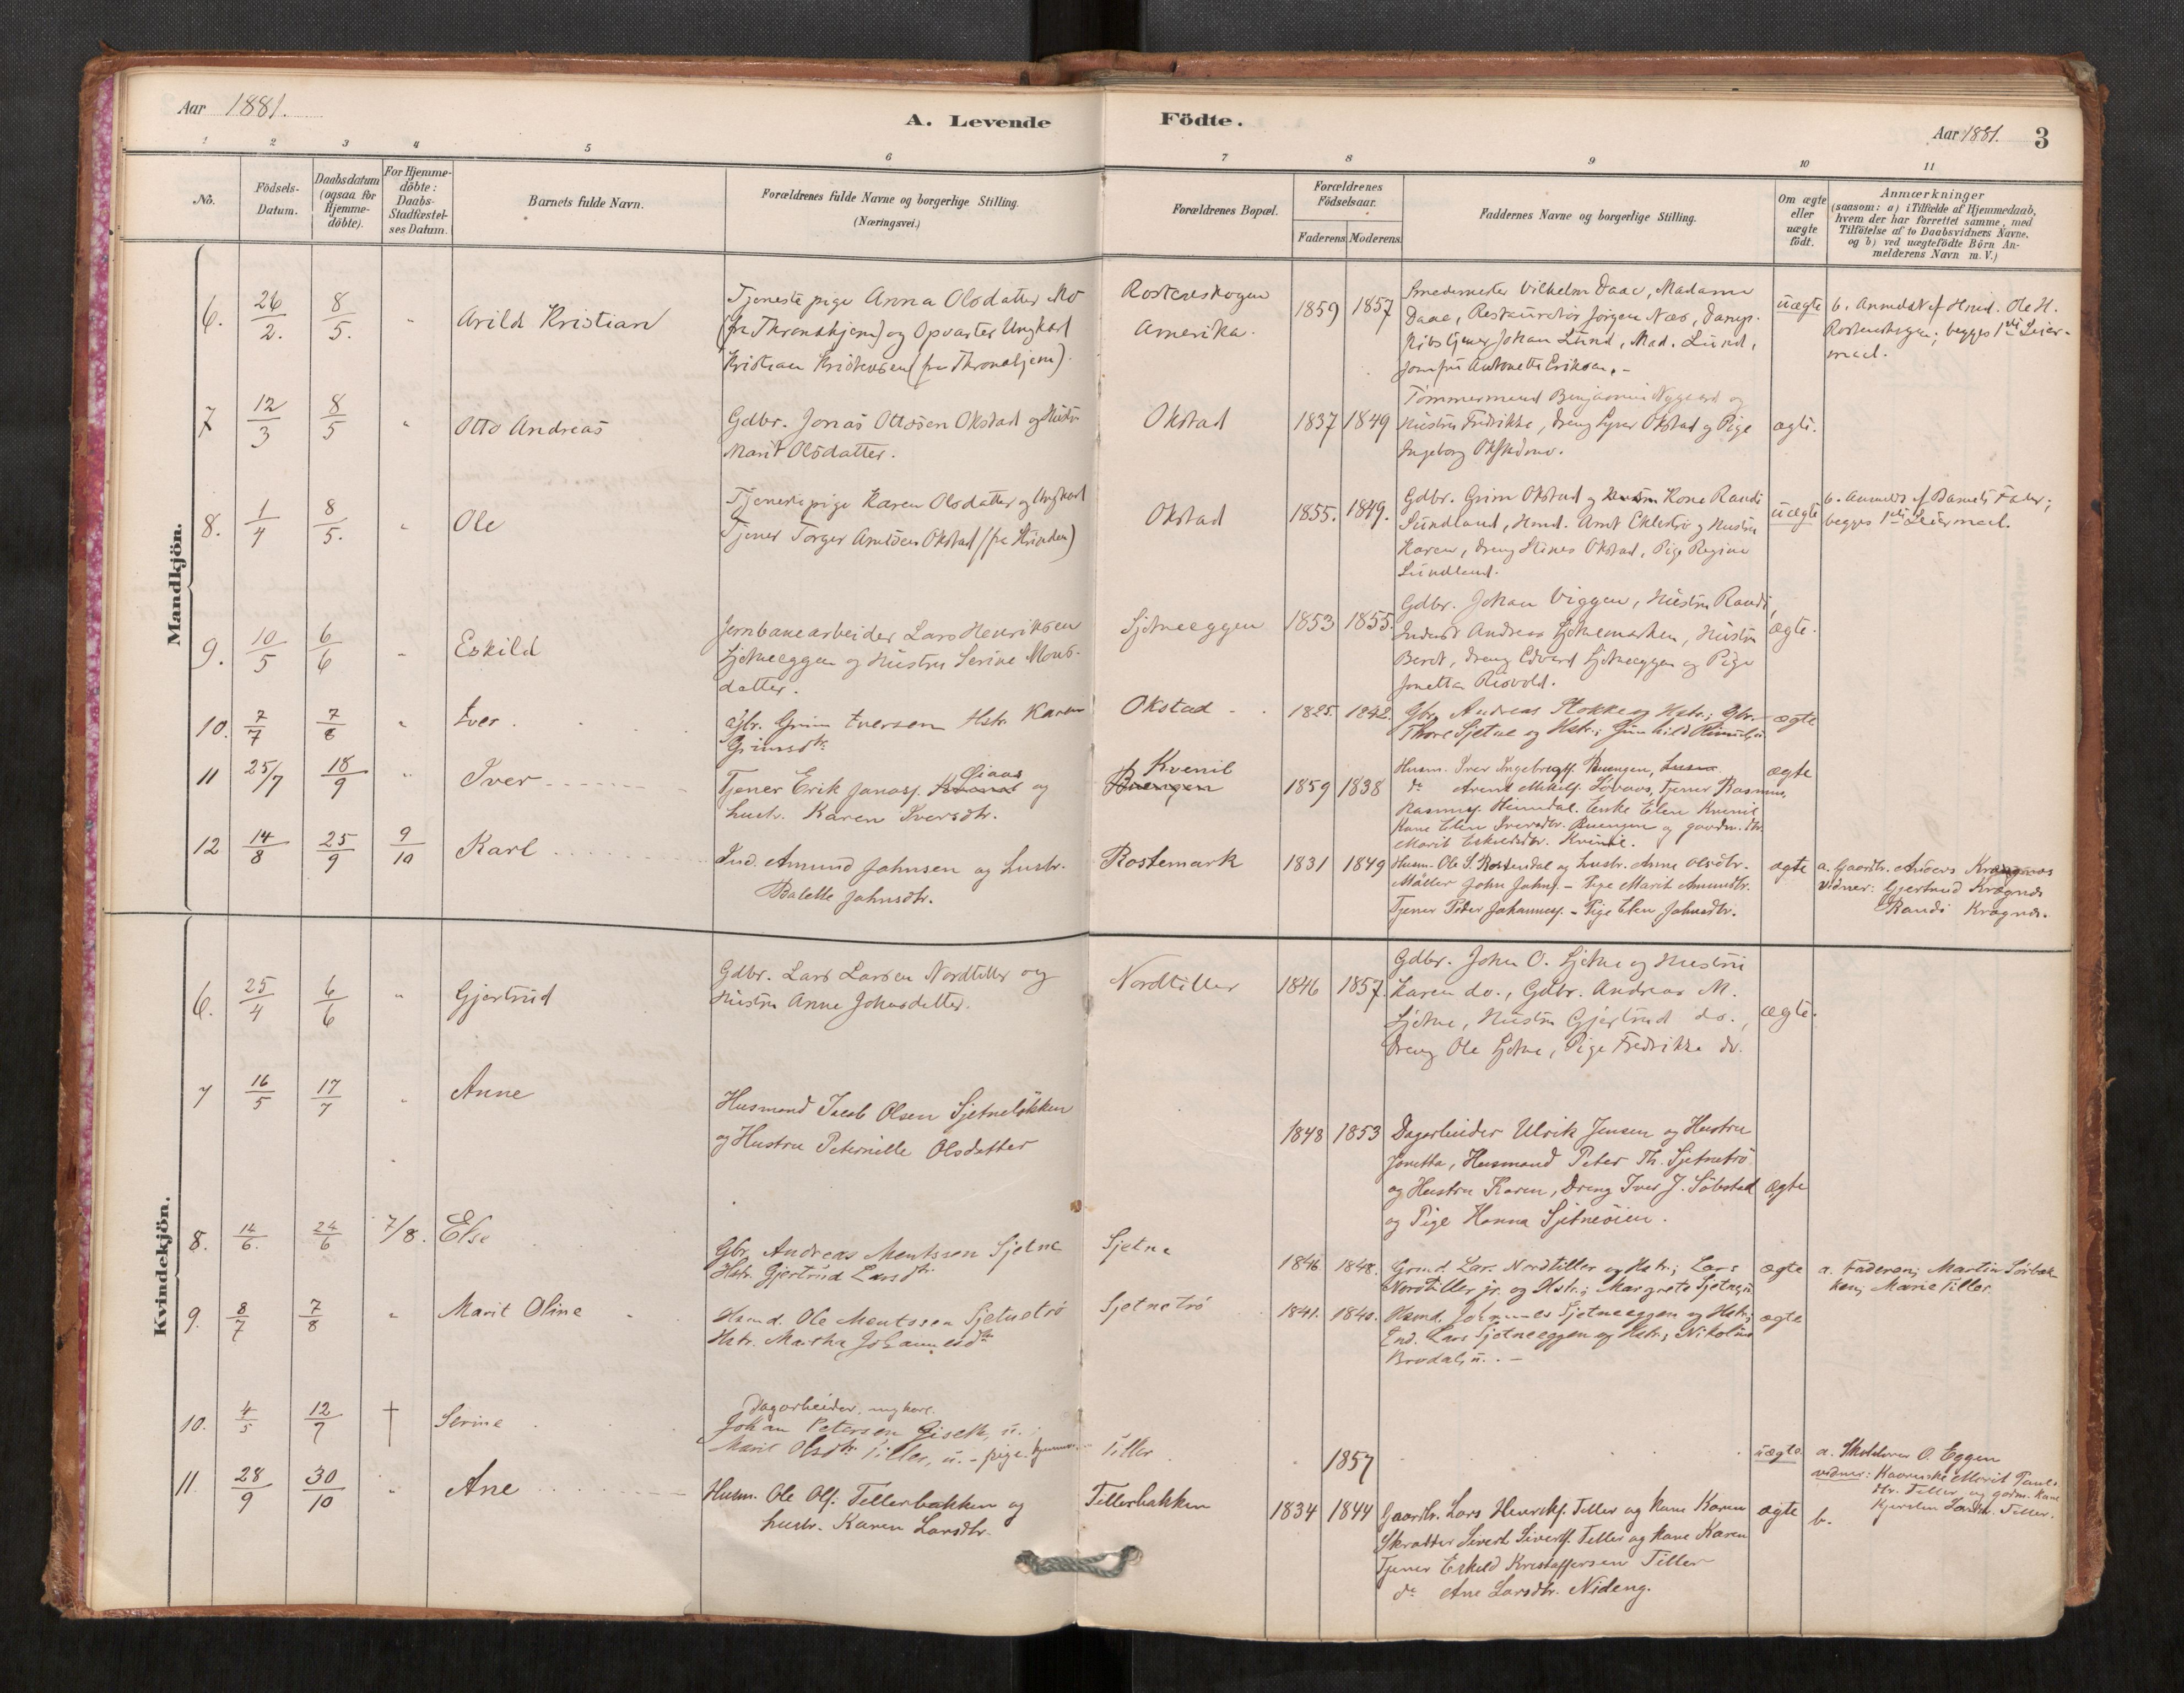 Aar 1881.
A. Levende Födte.
Aar 1881. 3
1 2 3 4 5 6 7 8 9 10 11
No.
Födsels-Datum.
Daabsdatum (ogsaa for Hjemme-döbte).
For Hjemme-döbte: Daabs-Stadfæstel-ses Datum.
Barnets fulde Navn.
Forældrenes fulde Navne og borgerlige Stilling.
(Næringsvei.)
Forældrenes Bopæl.
Forældrenes Födselsaar.
Faderens Moderens
Faddernes Navne og borgerlige Stilling.
Om ægte eller uægte födt.
Anmærkninger
(saasom: a) i Tilfælde af Hjemmedaab,
hvem der har forrettet samme, med
Tilföielse af to Daabsvidners Navne.
og b) ved uægtefödte Börn An-
melderens Navn m. V.)
Mandkjön.
6. 26/2. 8/5. " Arild Kristian
Tjenestepige Anna Olsdatter Mo
(fra Throndhjem) og Opvarter Ungkarl
Kristian Kristensen (fra Throndhjem).
Rostenskogen
Amerika.
1859 1857
Smedemester Vilhelm Daae, Madame
Daae, Restauratør Jørgen Næs,
Johan Lund, Mad. Lund,
Jomfru Antonette Eriksen. -
uægte
b. Anmeldt af Hmd. Ole H.
Rostenskogen; begges 1ste Leier-
maal.
7 12/3 8/5 " Otto Andreas
Gdbr. Jonas Ottosen Okstad og Hustru
Marit Olsdatter.
Okstad
1837 1849
Tømmermand Benjamin Nygaard og
Hustru Fredrikke, Dreng Okstad og Pige
Ingeborg
ægte.
8. 1/4 8/5. " Ole
Tjenestepige Karen Olsdatter og Ungkarl
Tjener Torger Arntsen Okstad (fra Strinden)
Okstad
1855. 1849.
Gdbr. Grim Okstad og Kone Randi
Sundland, Hmd. Arnt Eklestrø og Hustru
Karen, Dreng Okstad, Pige Regine
Sundland.
uægte
b. Anmeldt af Barnets Fader;
begges 1ste Leiermaal.
9. 10/5 6/6 " Eskild
Jernbanearbeider Lars Henriksen
Sjetneeggen og Hustru Serine Mons-
datter.
Sjetneeggen
1853 1855.
Gdbr. Johan Viggen, Hustru Randi,
Inderst Andreas Sjetnemarken, Hustru
Beret, Dreng Edvard Sjetneeggen og Pige
Jonetta Risvold.
ægte.
10. 7/7 7/8 " Iver
Gbr. Grim Iversen Hstr. Karen
Grimsdtr.
Okstad
1825. 1842.
Gbr. Andreas Flokke og Hstr.; Gbr.
Thore Sjetne og Hstr.; Gunhild
ægte
11 25/7 18/9 " Iver
Tjener Erik Jonass. og
hustr. Karen Iversdtr.
Kvenil
1859 1838
Husm. Iver Ingebrigts. Ruengen,
do Arent Mikels. Løvaas, Tjener Rasmus
Rasmuss. Heimdal. Enke Elen Kvenil
Kone Elen Iversdtr. Ruengen og gaardm. dtr.
Marit Eskildsdtr. Kvenil.
ægte
12 14/8 25/9 9/10 Karl
Ind. Amund Johnsen og hustr.
Balette Johnsdtr.
Rostemark
1831 1849
Husm. Ole S. Rostendal og hustr. Anne Olsdtr.
Møller John Johns. - Pige Marit Amundtr.
Tjener Peder Johanness. - Pige Elen Johnsdtr.
ægte
a. Gaardbr. Anders Kragnæs
Vidner: Gjertrud Kragnæs
Randi Kragnæs.
Kvindekjön.
6. 25/4 6/6 " Gjertrud
Gdbr. Lars Larsen Nordtiller og
Hustru Anne Johnsdatter.
Nordtiller
1846 1857.
Gdbr. John O. Sjetne og Hustru
Karen do., Gdbr. Andreas M.
Sjetne, Hustru Gjertrud do.,
Dreng Ole Sjetne, Pige Fredrikke do.
ægte.
7 16/5 17/7 " Anne
Husmand Jacob Olsen Sjetneløkken
og Hustru Peternille Olsdatter
1848 1853
Dagarbeider Ulrik Jensen og Hustru
Jonetta, Husmand Peter Th. Sjetnetrø
og Hustru Karen, Dreng Iver J. Søbstad
og Pige Hanna Sjetneøien.
ægte
8. 14/6. 24/6 7/8. Else
Gbr. Andreas Mentssen Sjetne
Hstr. Gjertrud Larsdtr.
Sjetne
1846 1848.
Grmd. Lars Nordtiller og Hstr.; Lars
Nordtiller jr. og Hstr.; Margrete Sjetne, u.
ægte
a. Faderen; Martin Sørbæk-
ken; Marie Tiller.
9. 8/7 7/8 " Marit Oline
Husmd. Ole Mentssen Sjetnetrø
Hstr. Martha Johannesdtr
Sjetnetrø
1841. 1840.
Husmd. Johannes Sjetneeggen og Hstr.;
Ind. Lars Sjetneeggen og Hstr.; Nikoline
Brodal, u. -
ægte
10. 4/5 12/7 † Serine
Dagarbeider, ungkarl.
Johan Petersen u.;
Marit Olsdtr. Tiller, u. - pige hjemme.
Tiller
1857
uægte
a. Skolelærer O. Eggen
vidner: Kaarenske Marit Pauls-
dtr. Tiller og gdm. kone
Kjersten Larsdtr. Tiller.
b.
11 28/9 30/10 " Ane
Husm. Ole Ols. Tellerbakken og
hustr. Karen Larsdtr.
Tellerbakken
1834 1844
Gaardbr. Lars Henriks. Teller og kone Karen
Skrædder Sivert Siverts. Teller og kone Karen
Tjener Eskild Kristoffersen Tiller
do Ane Larsdtr. Nideng.
ægte